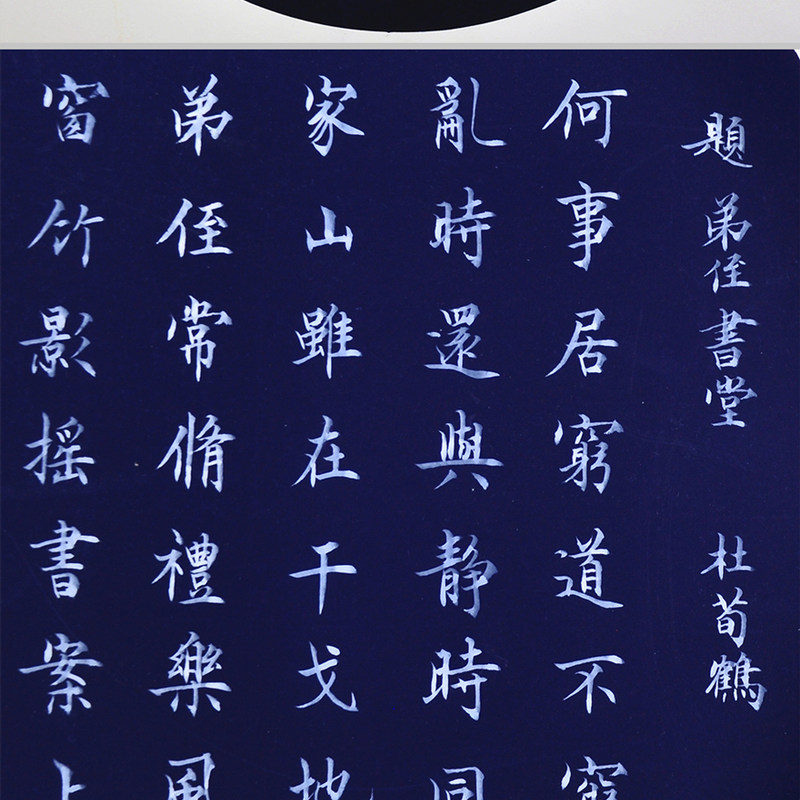 題弟侄書堂 杜荀鶴
何事居窮道不窮
亂時還與静時同
家山雖在干戈地
弟侄常脩禮樂風
窗竹影摇書案上